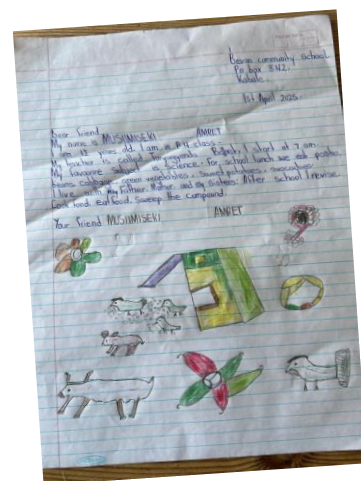 Besian community school
P.O box 342.
Kabale
1st April 2025.
Dear Friend
My name is MUSIIMISEKI AMRET
I am 12 years old. I am a P.4 class.
My teacher is called Tr. I start at 7 am.
My favourite subject is Science. For school lunch we eat posho,
beans cabbage, green vegetables, sweet potatoes,
I live with my Father, Mother, and my Sisters. After school I revise.
food, eat food, sweep the compound.
Your Friend MUSIIMISEKI AMRET